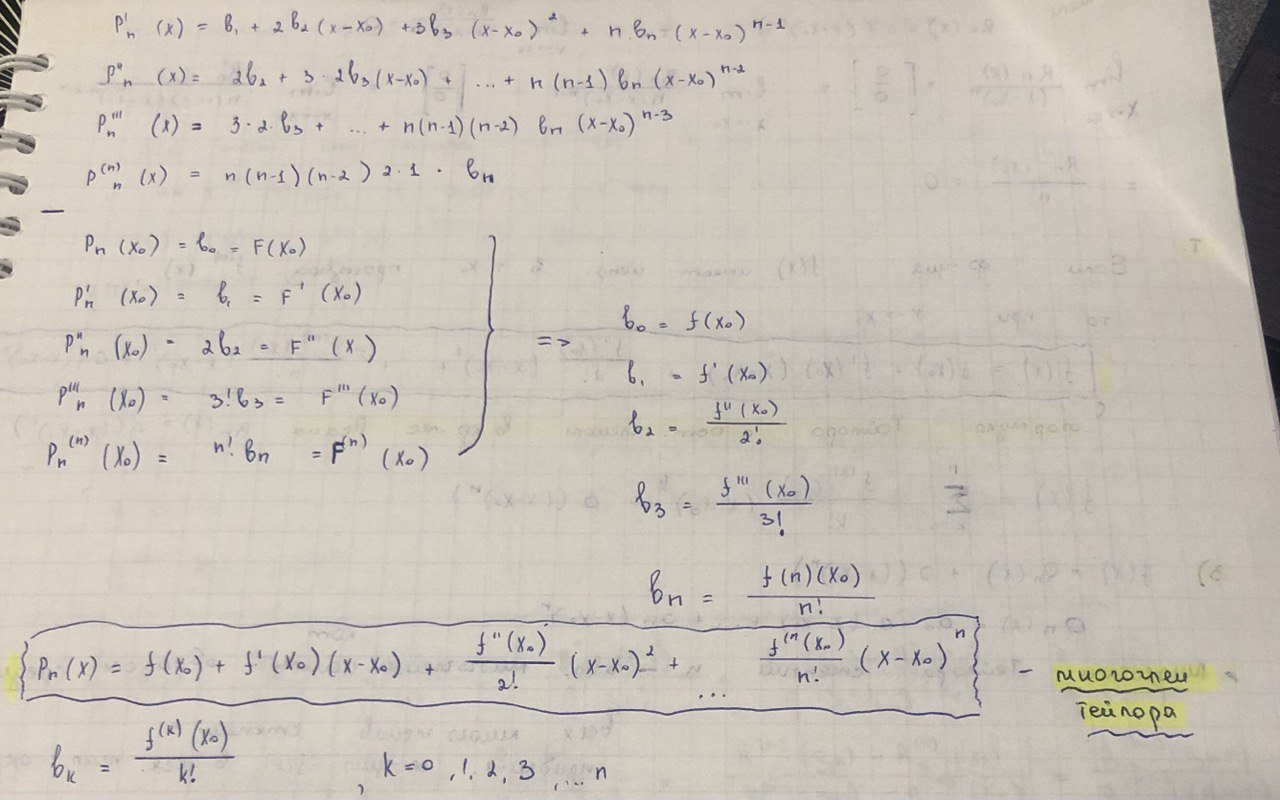 P'ₙ (x) = b₁ + 2b₂(x-x₀) + 3b₃ (x-x₀)² + n bₙ (x-x₀)ⁿ⁻¹
P''ₙ (x) = 2b₂ + 3·2b₃(x-x₀) + ... + n(n-1) bₙ (x-x₀)ⁿ⁻²
Pₙ''' (x) = 3·2·b₃ + ... + n(n-1)(n-2) bₙ (x-x₀)ⁿ⁻³
P⁽ⁿ⁾ₙ (x) = n(n-1)(n-2) 2·1 · bₙ
Pₙ (x₀) = b₀ = F(x₀)
P'ₙ (x₀) = b₁ = F' (x₀)
P''ₙ (x₀) = 2b₂ = F'' (x)
P'''ₙ (x₀) = 3! b₃ = F''' (x₀)
Pₙ⁽ⁿ⁾ (x₀) = n! bₙ = F⁽ⁿ⁾ (x₀)
=>
b₀ = f(x₀)
b₁ = f'(x₀)
b₂ = f''(x₀) / 2!
b₃ = f'''(x₀) / 3!
bₙ = f(n)(x₀) / n!
Pₙ(x) = f(x₀) + f'(x₀)(x-x₀) + f''(x₀) / 2! (x-x₀)² + ... f⁽ⁿ(x₀) / n! (x-x₀)ⁿ - многочлен
Тейлора
bₖ = f⁽ᵏ⁾(x₀) / k! , k = 0, 1, 2, 3, ... n